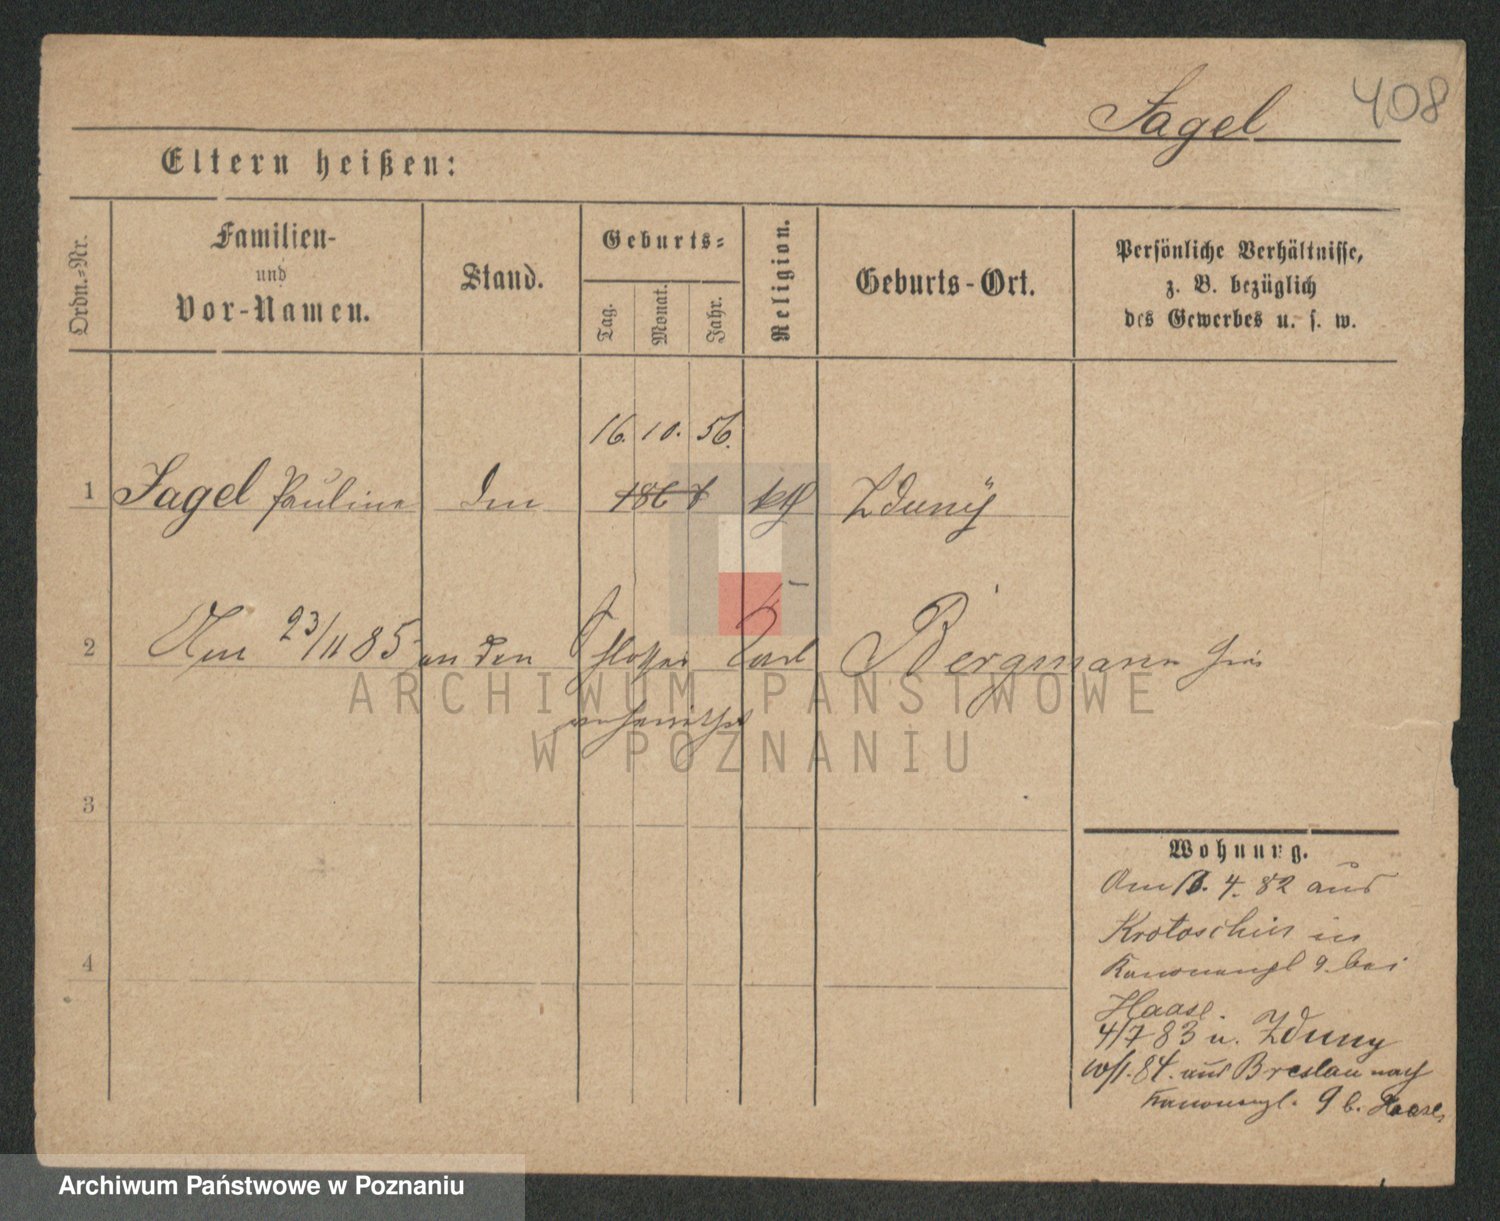 Jagel 408
Eltern heißen:
Ordn.=Nr.
Familien-
und
Vor-Namen.
Stand.
Geburts=
Tag.
Monat.
Jahr.
Religion.
Geburts-Ort.
Persönliche Verhältnisse,
z. B. bezüglich
des Gewerbes u. s. w.
16. 10. 56.
1 Jagel Pauline 1867 kth Zduny
2 Am 23/11 85 an den Schlosser Karl Bergmann hier
verheirathet
3
4
Wohnung.
Am 4. 82 aus
Krotoschin in
Kanonenpl 9 bei
Haase.
4/7 83 n. Zduny
10/1. 84. aus Breslau nach
Kanonenpl. 9 b. Haase
ARCHIWUM PAŃSTWOWE
W POZNANIU
Archiwum Państwowe w Poznaniu